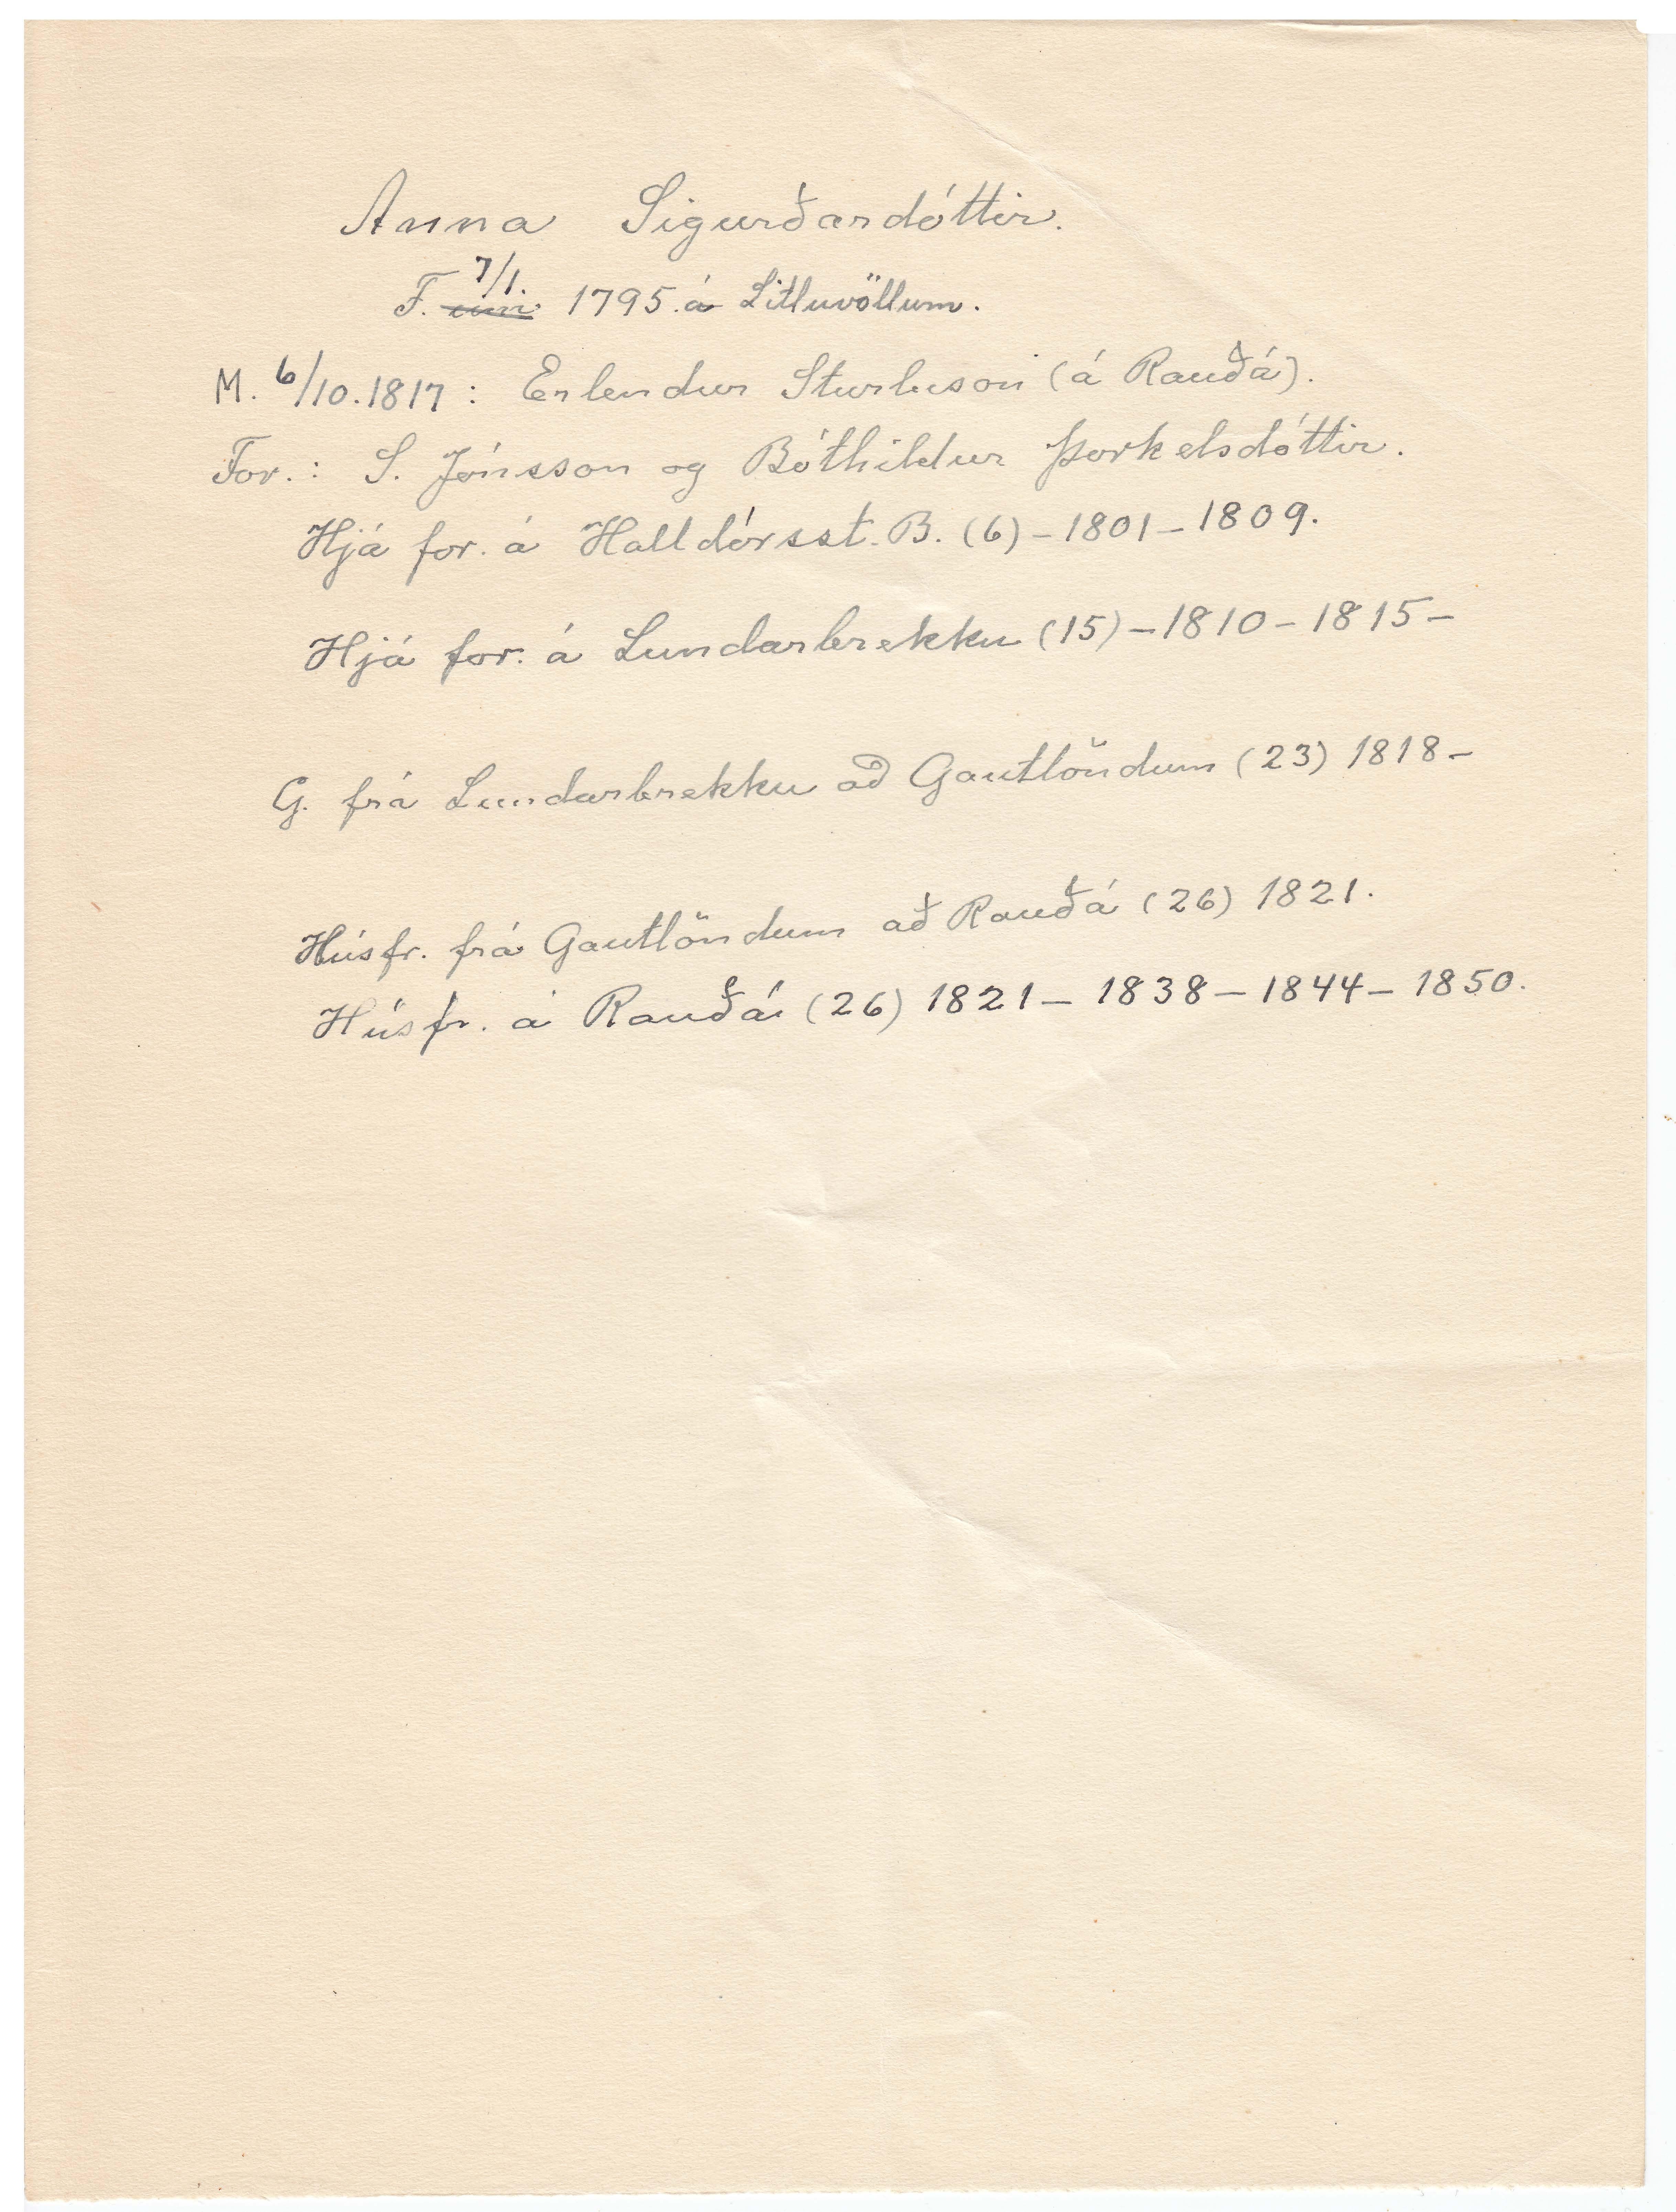 Anna Sigurðardóttir.
F. 7/1. 1795 á Litluvöllum.
M. 6/10.1817 : Erlendur Sturluson (á Rauðá).
For. : S. Jónsson og Bóthildur Þorkelsdóttir.
Hjá for. á Halldórsst. B. (6) – 1801 – 1809.
Hjá for. á Lundarbrekku (15) – 1810 – 1815 –
G. frá Lundarbrekku að Gautlöndum (23) 1818 –
Húsfr. frá Gautlöndum að Rauðá (26) 1821.
Húsfr. á Rauðá (26) 1821 – 1838 – 1844 – 1850.